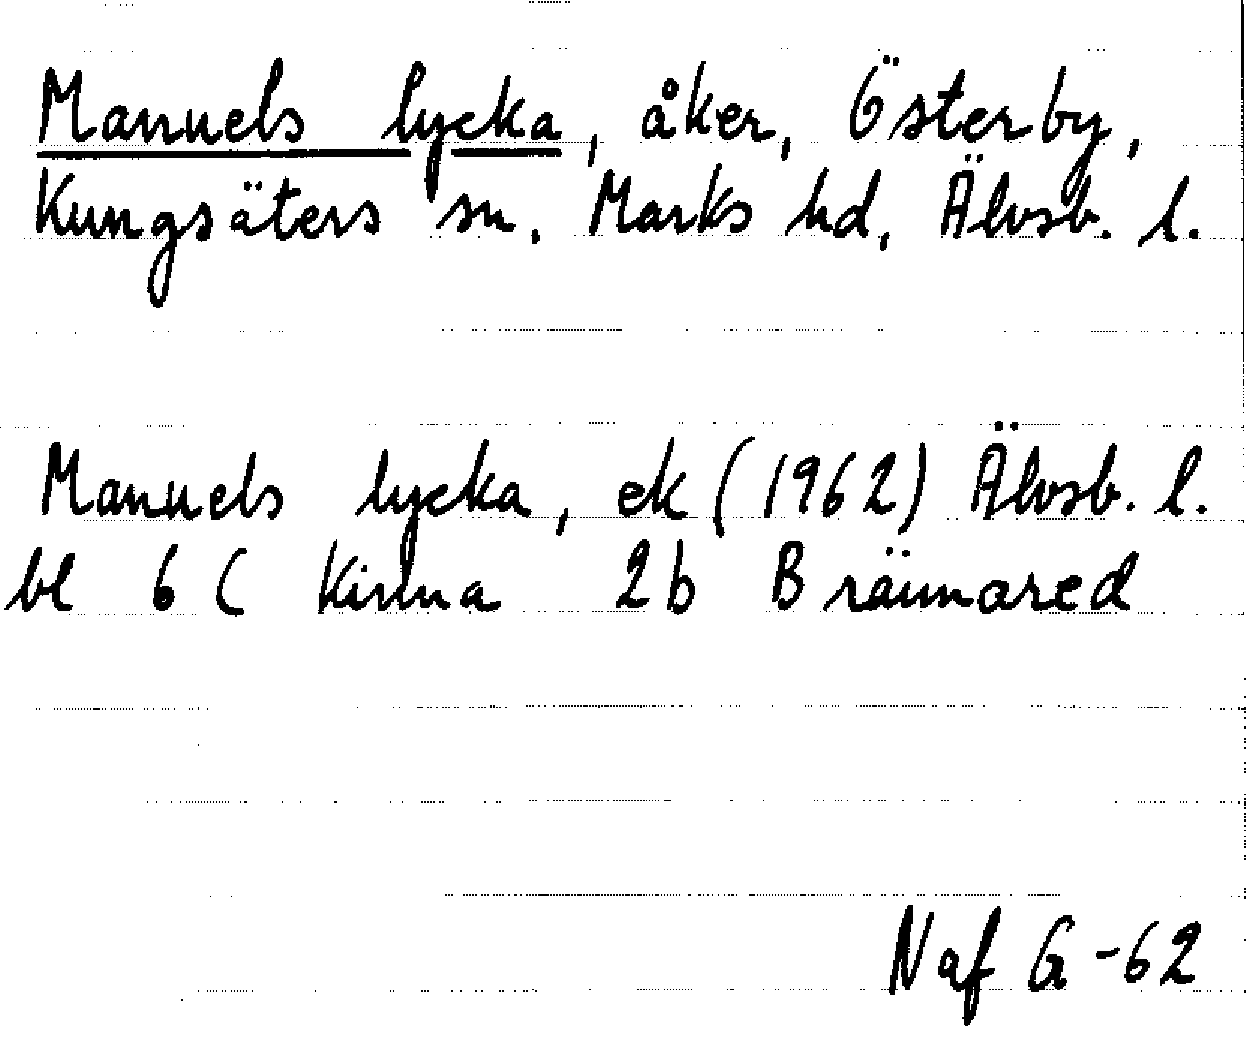 Manuels lycka, åker, Österby,
Kungsäters sn, Marks hd, Älvsb. l.
Manuels lycka, ek (1962) Älvsb. l.
bl 6 C Kinna 2b Brännared
Naf G-62